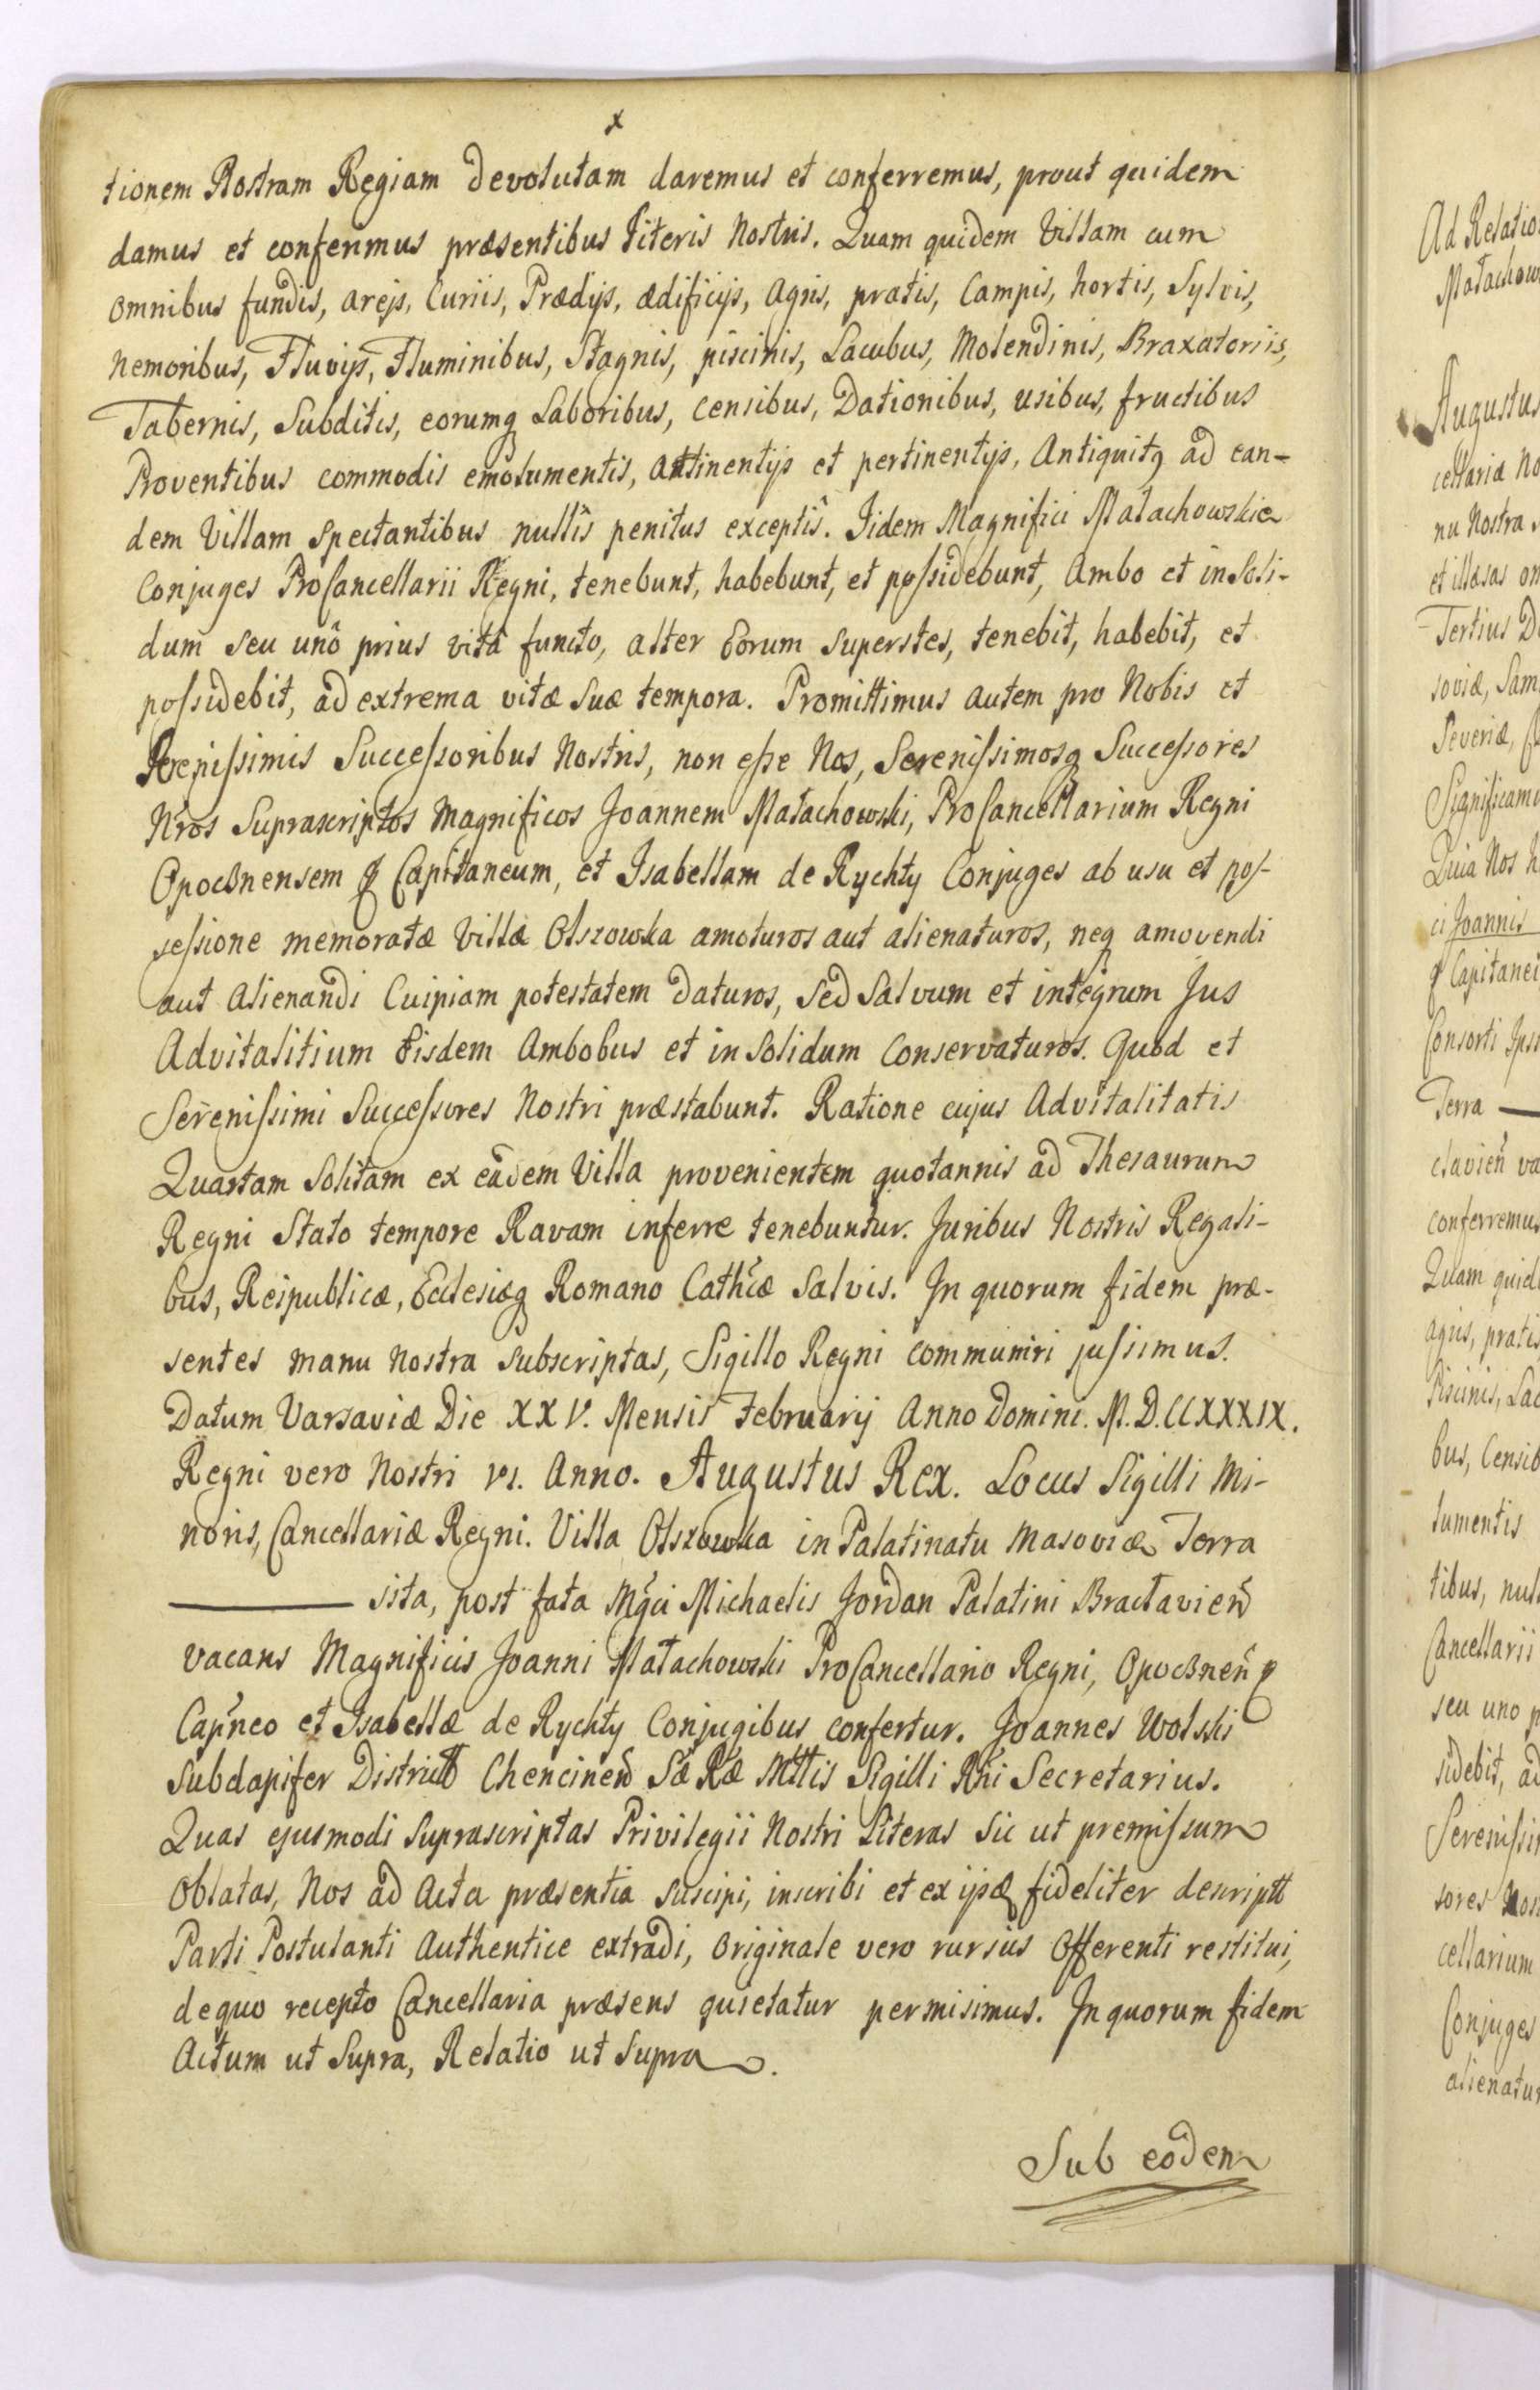 x
tionem Nostram Regiam devolutam daremus et conferremus, prout quidem
damus et conferimus præsentibus Literis Nostris. Quam quidem Villam cum
omnibus fundis, arejs, Curiis, Prædijs, ædificijs, Agris, pratis, Campis, hortis, Sylvis,
Nemoribus, Fluvijs, Fluminibus, Stagnis, piscinis, Lacubus, Molendinis, Braxatoriis,
Tabernis, Subditis, eorumq Laboribus, Censibus, Dationibus, usibus, fructibus
Proventibus commodis emolumentis, attinentijs et pertinentijs, Antiquitq ad ean-
dem Villam spectantibus nullîs penitus exceptîs. Iidem Magnifici Małachowskie
Conjuges ProCancellarii Regni, tenebunt, habebunt, et possidebunt, Ambo et in Soli-
dum seu unô prius vitâ functo, alter Eorum superstes, tenebit, habebit, et
possidebit, ad extrema vitæ suæ tempora. Promittimus autem pro Nobis et
Serenissimis Successoribus Nostris, non esse Nos, Serenissimosq Successores
Nros Suprascriptos Magnificos Joannem Małachowski, ProCancellarium Regni
Opocznensem q Capitaneum, et Isabellam de Rychty Conjuges ab usu et pos-
sessione memoratæ Villæ Olszowka amoturos aut alienaturos, neq amovendi
aut Alienandi Cuipiam potestatem daturos, sed Salvum et integrum Jus
Advitalitium Eisdem Ambobus et in Solidum Conservaturos. Quod et
Serenissimi Successores Nostri præstabunt. Ratione cujus Advitalitatis
Quartam Solitam ex eâdem Villa provenientem quotannis ad Thesaurum
Regni Stato tempore Ravam inferre tenebuntur. Juribus Nostris Regali-
bus, Reipublicæ, Ecclesiæq Romano Cathcæ Salvis. In quorum fidem præ-
sentes manu Nostra Subscriptas, Sigillo Regni communiri jussimus.
Datum Varsaviæ Die XXV. Mensis Februarij Anno Domini. M.D.CCXXXIX.
Regni vero Nostri VI. Anno. Augustus Rex. Locus Sigilli Mi-
noris, Cancellariæ Regni. Villa Olszowka in Palatinatu Masoviæ Terra
——— sita, post fata Mgci Michaelis Jordan Palatini Bractavien
vacans Magnificis Joanni Małachowski ProCancellario Regni, Opocznen q
Capneo et Isabellæ de Rychty Conjugibus confertur. Joannes Wolski
Subdapifer Districtt Chencinen Sæ Ræ Mttis Sigilli Rni Secretarius.
Quas ejusmodi Suprascriptas Privilegii Nostri Literas Sic ut premissum
Oblatas, Nos ad Acta præsentia suscipi, inscribi et ex ijsq fideliter descriptt
Parti Postulanti Authentice extradi, Originale vero rursus Offerenti restitui,
de quo recepto Cancellaria præsens quietatur permisimus. In quorum fidem
Actum ut Supra, Relatio ut Supra.
Sub eodem
Ad Relatio
Małachow
Augustus
cellariæ No
nu Nostra
et illæsas om
Tertius D
soviæ, Sam
Severiæ,
Significamu
Quia Nos h
ci Joannis
q Capitanei
Consorti Ipsi
Terra —
clavien va
conferremus
Quam quid
agris, pratis
Piscinis, Lac
bus, Censib
lumentis
tibus, nul
Cancellarii
seu uno p
sidebit, ad
Serenissi
sores Nos
cellarium
Conjuges
alienatur